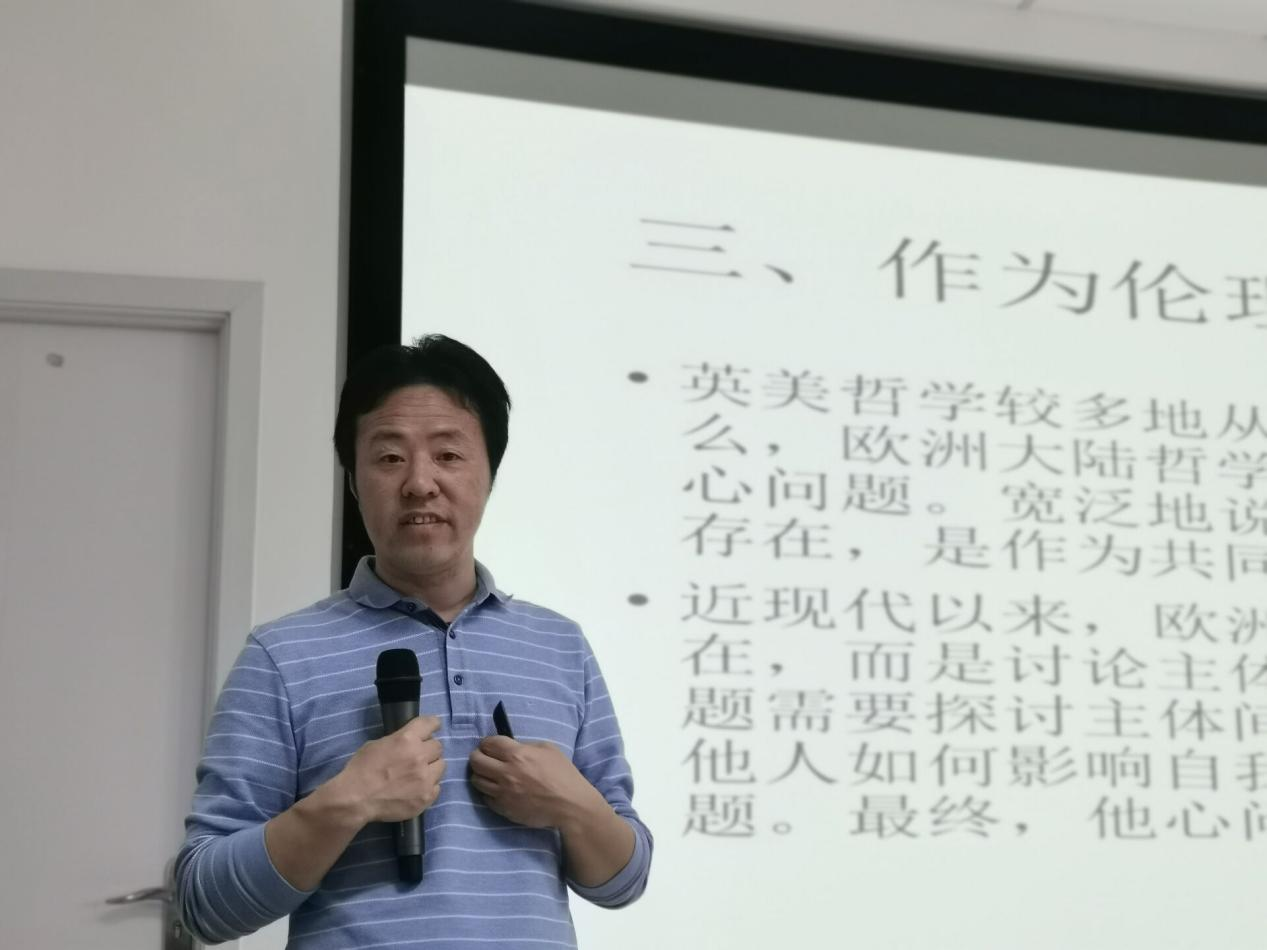 三、作为伦理
• 英美哲学较多地从
么，欧洲大陆哲学
心问题。宽泛地说
存在，是作为共同
• 近现代以来，欧洲
在，而是讨论主体
题需要探讨主体间
他人如何影响自我
题。最终，他心问